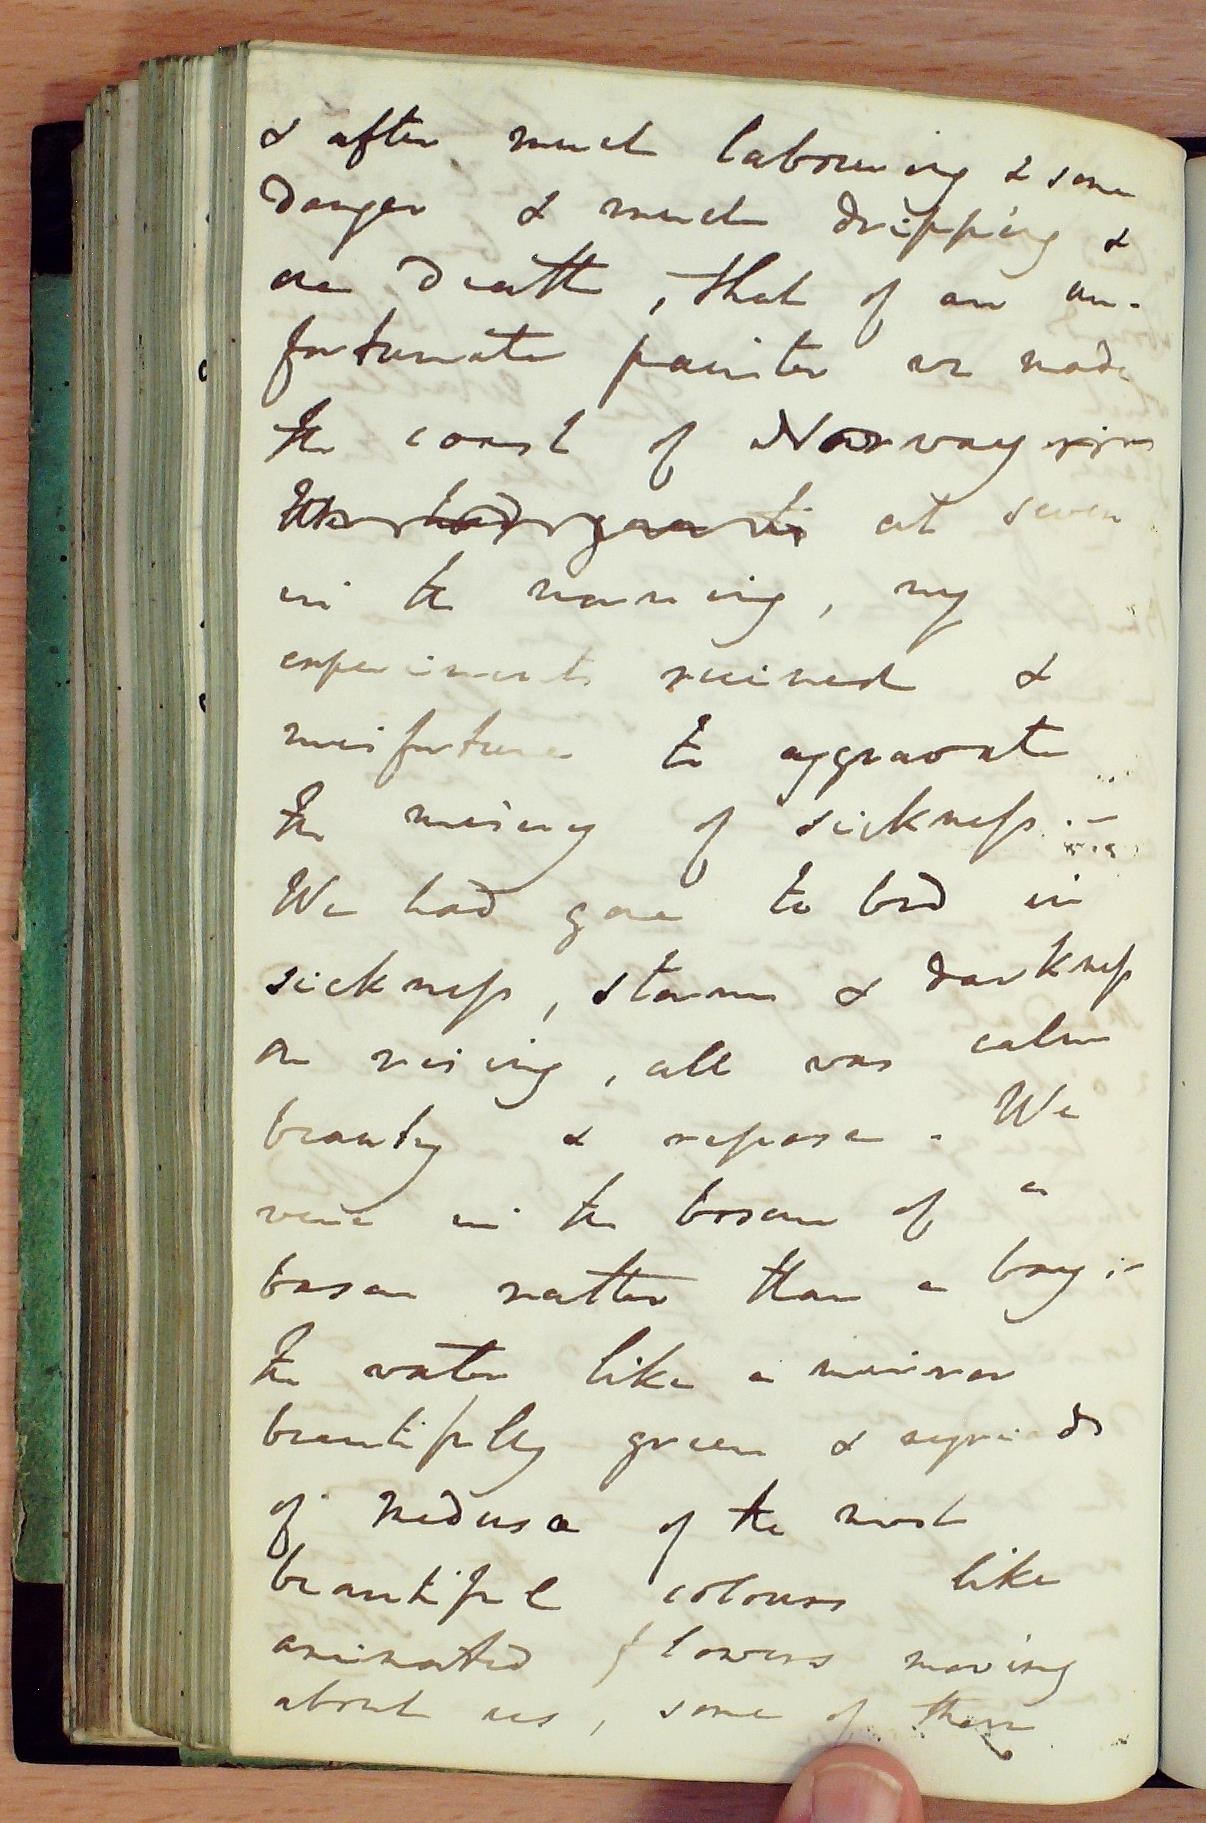 & after much labouring & some
danger & much dripping &
one death, that of an un-
fortunate painter we made
the coast of Norway
We had gone to at seven
in the morning, my
experiments ruined &
misfortune to aggravate
the misery of sickness. –
We had gone to bed in
sickness, storm & darkness
on rising, all was calm
beauty & repose. We
were in the bosom of a
basin rather than a bay:–
the water like a mirror
beautifully green & myriads
of medusa of the most
beautiful colours like
animated flowers moving
about us, some of them